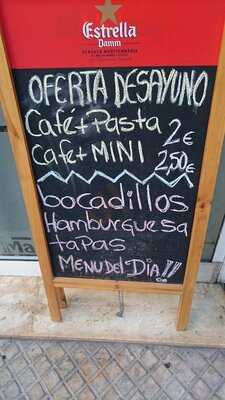 Estrella
Damm
OFERTA DESAYUNO
Café+Pasta 2€
Café+MINI 2,50€
bocadillos
Hamburguesa
tapas
MENU Del DIA!!